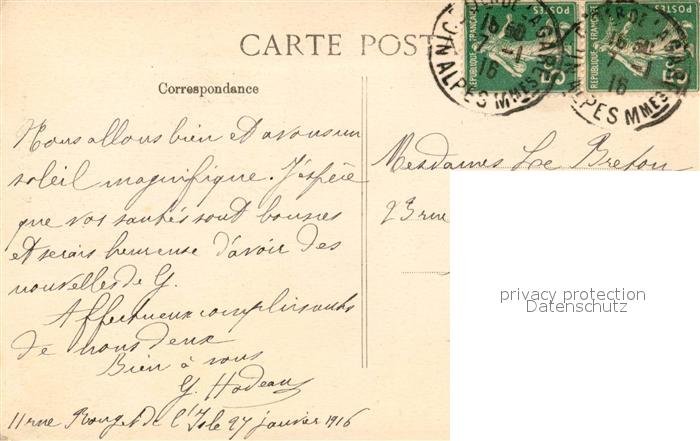 CARTE POST
Correspondance
Nous allons bien et avons un
soleil magnifique. J'espère
que vos santés sont bonnes
et serais heureuse d'avoir des
nouvelles de G.
Affectueux compliments
de nous deux
Bien à vous
G. Hodeau
11 rue Rouget de l'Isle 27 janvier 1916
REPUBLIQUE FRANÇAISE
POSTES
REPUBLIQUE FRANÇAISE
POSTES
GARE
16
ALPES MMES
GARE
16
ALPES MMES
Mesdames Le Breton
23 rue
privacy protection
Datenschutz